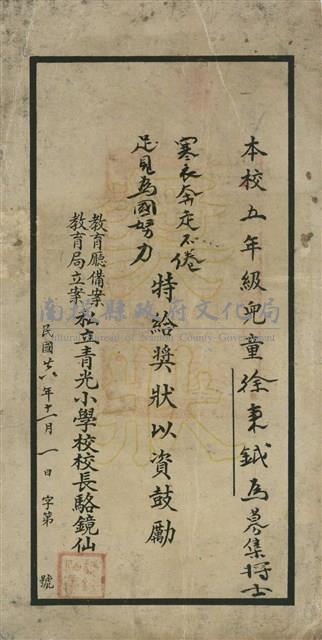 本校五年級兒童徐秉鉞為募集將士
寒衣奔走不倦
足見為國努力
特給獎狀以資鼓勵
教育廳備案
教育局立案
私立青光小學校校長駱鏡仙
民國廿六年十二月一日
字第 號
南投縣政府文化局
Cultural Bureau of Nantou County Government